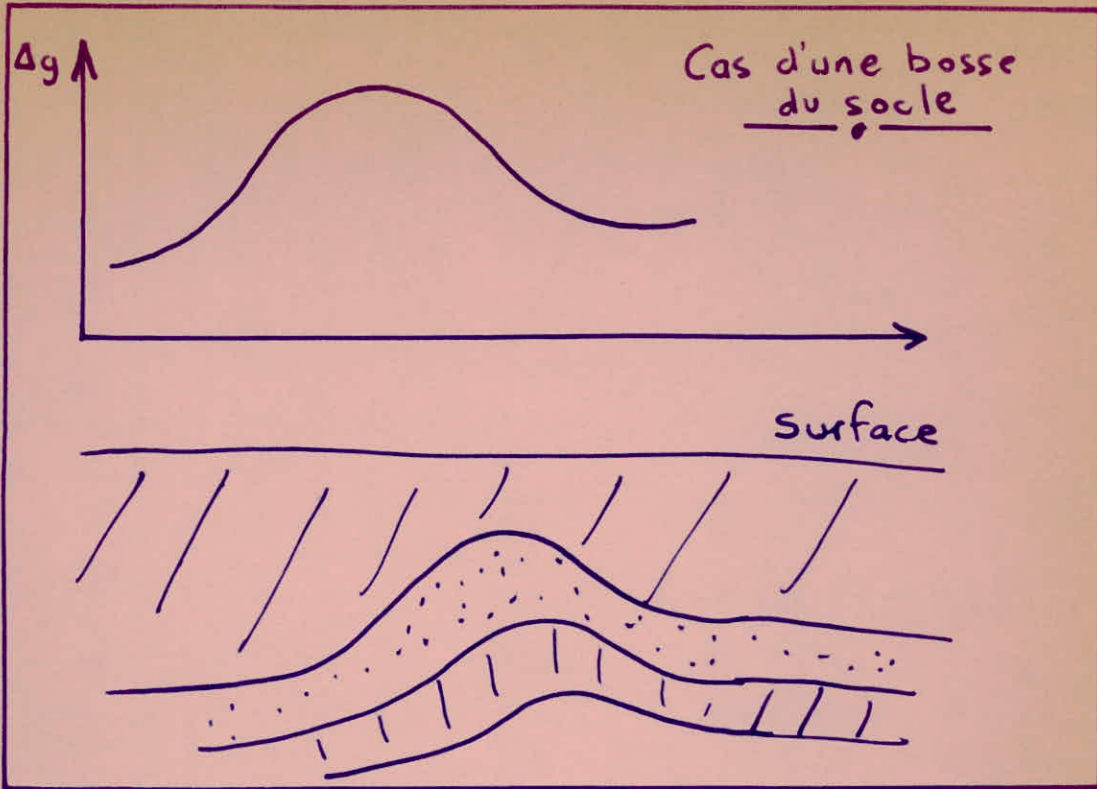 Δg
Cas d'une bosse
du socle
Surface